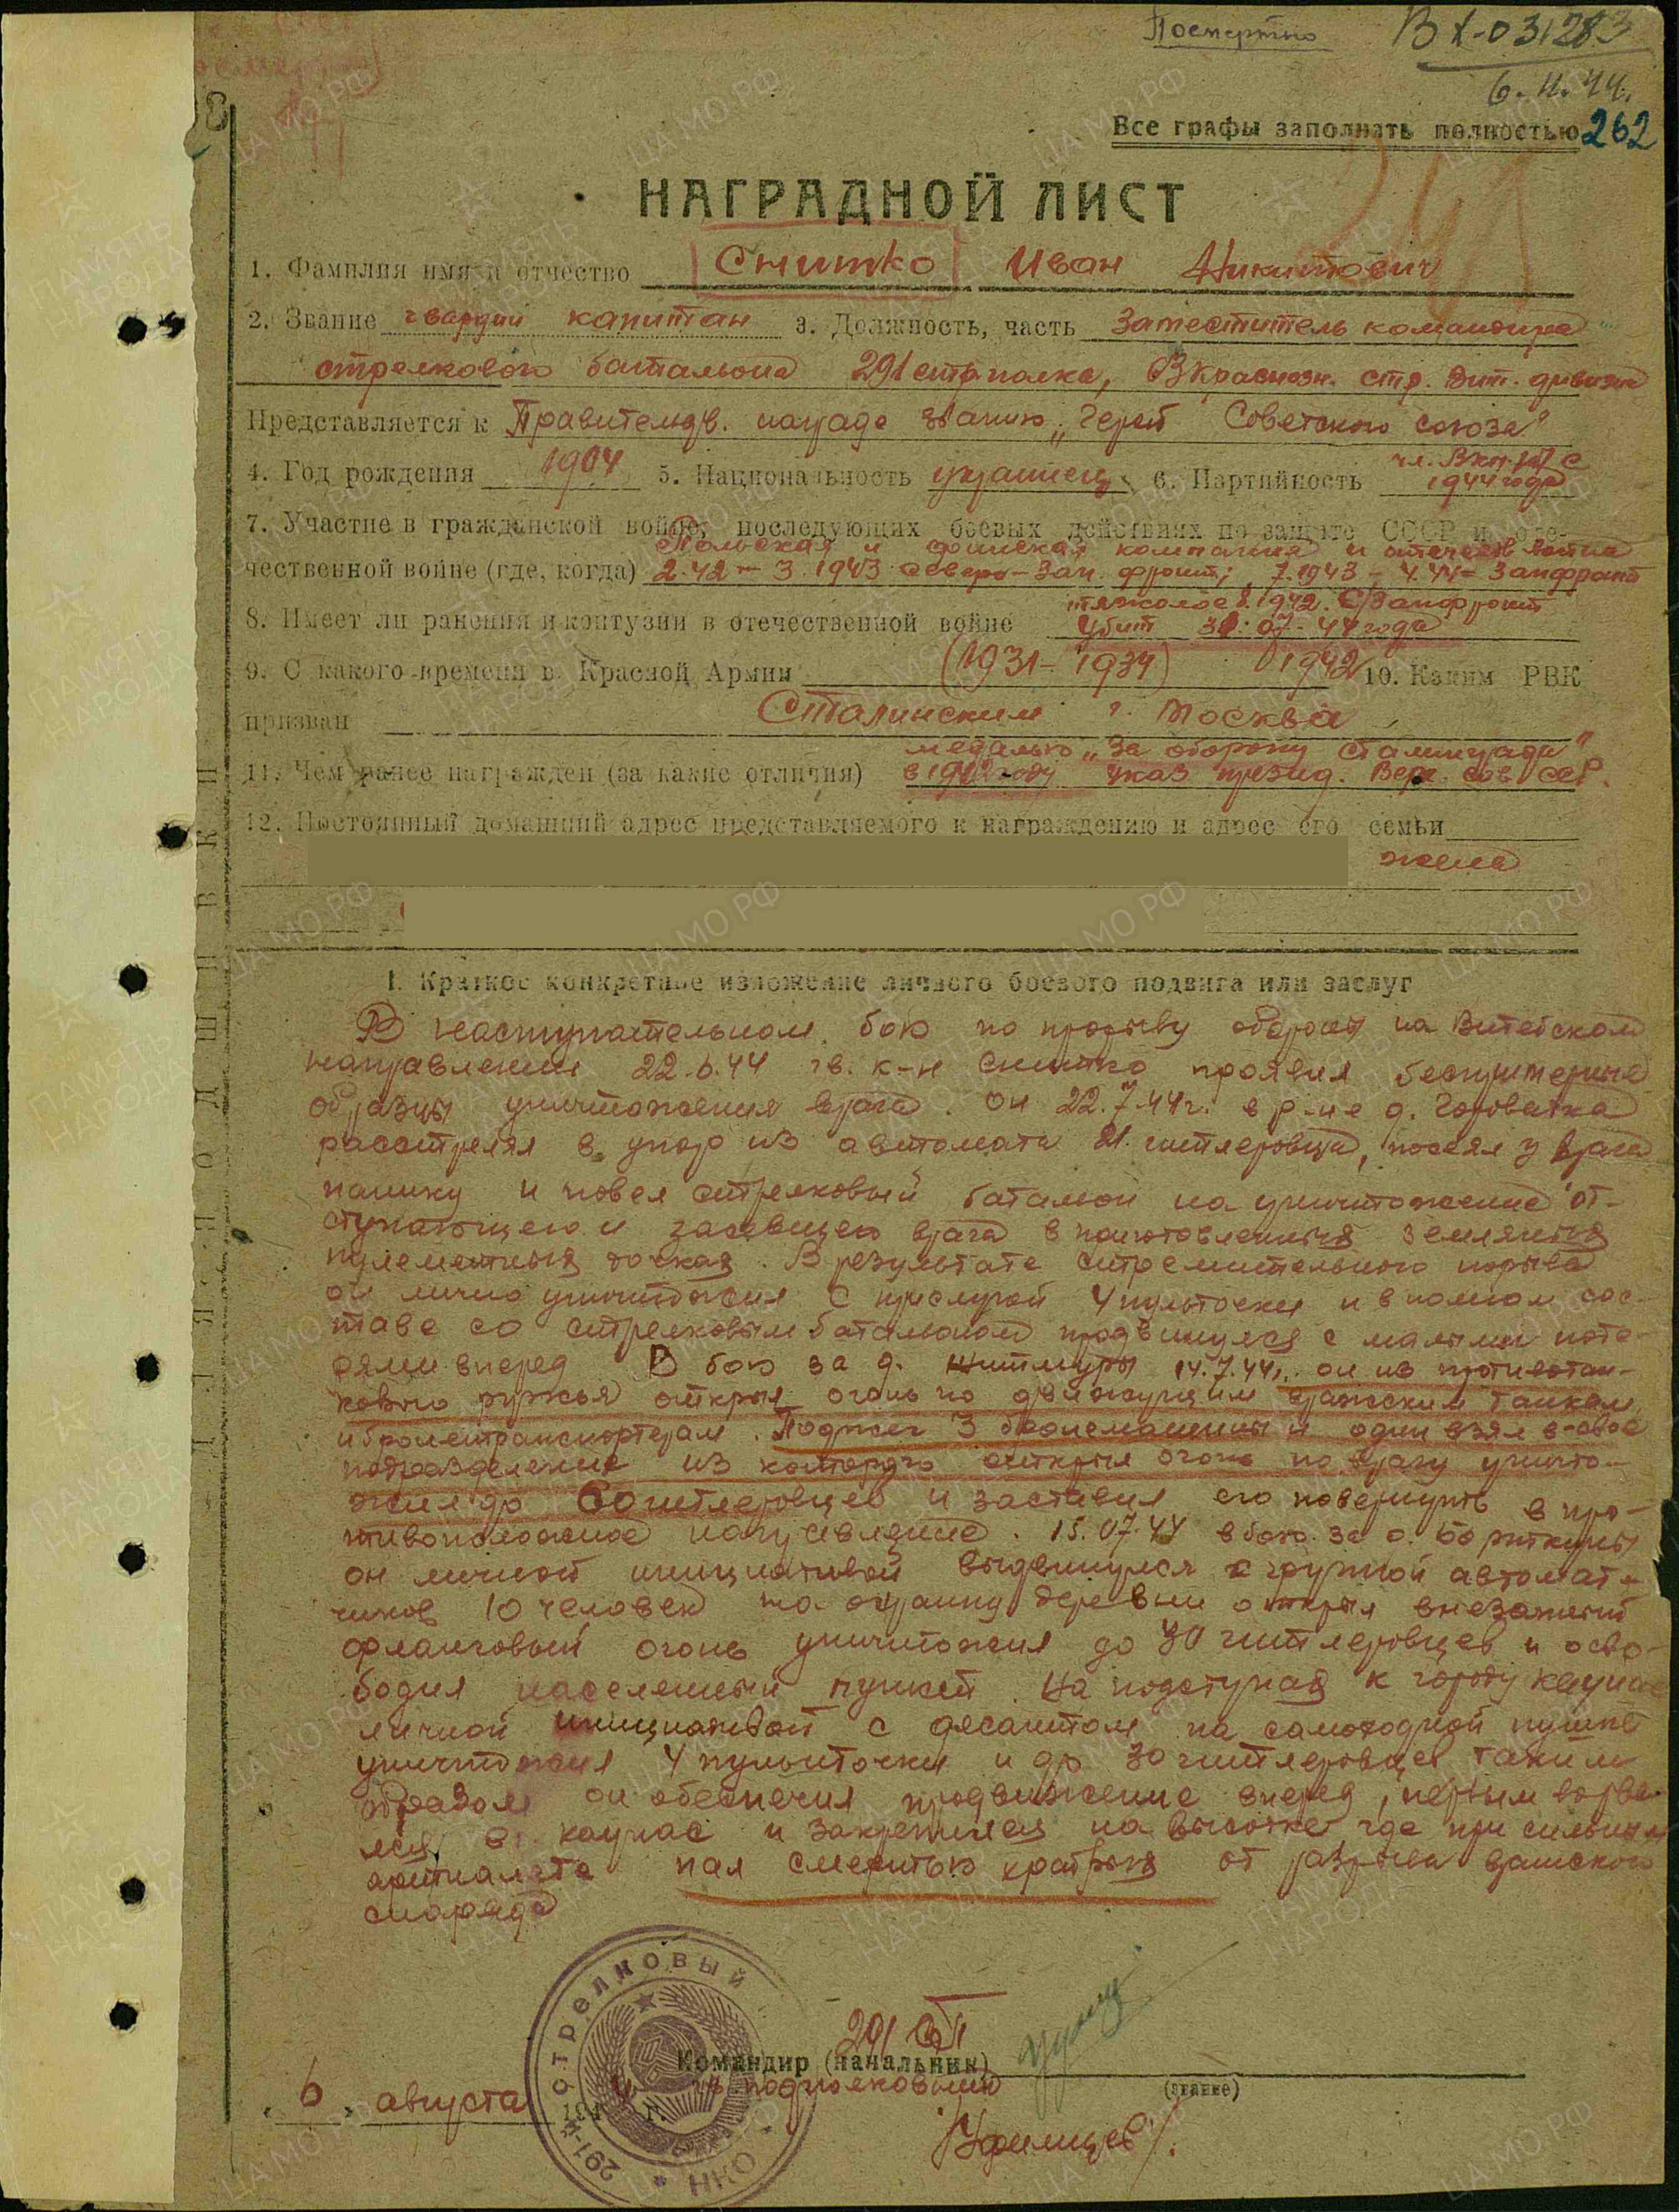 Посмертно Вх-031283
6.11.44.
Все графы заполнать полностью 262
НАГРАДНОЙ ЛИСТ
1. Фамилия имя и отчество Снитко Иван Никитович
2. Звание гвардии капитан 3. Должность, часть Заместитель командира
стрелкового батальона 291 стр. полка, Краснозн. стр. Вит. дивизии
Представляется к Правительств. награде званию „Герой Советского союза"
4. Год рождения 1904 5. Национальность украинец 6. Партийность чл. ВКП(б) с
1944 года
7. Участие в гражданской войне, последующих боевых действиях по защите СССР и оте-
Польская и финская компания и отечеств война
чественной войне (где, когда) 2.42 - 3.1943 Северо-Зап. фронт; 7.1943 - 4.44 - Запфронт
тяжолое 8.1942. С/Запфронт
8. Имеет ли ранения и контузии в отечественной войне Убит 30.07.44 года
9. С какого времени в Красной Армии (1931-1934) 1942 10. Каким РВК
призван Сталинским г. Москва
медалью „За оборону Сталинграда"
11. Чем ранее награжден (за какие отличия) в 1942 году указ презид. Верх. сов ССР.
12. Постоянный домашний адрес представляемого к награждению и адрес его семьи
жена
I. Краткое конкретное изложение личного боевого подвига или заслуг
В наступательном бою по прорыву обороны на Витебском
направлении 22.6.44 гв. к-н Снитко проявил
образцы уничтожения врага. Он 22.7.44 г. в р-не д.
расстрелял в упор из автомата 21 гитлеровца, посеял у врага
панику и повел стрелковый батальон на уничтожение от-
ступающего и засевшего врага в подготовленных земляных
пулеметных точках. В результате стремительного порыва
он лично уничтожил с прислугой 4 пульточки и в полном сос-
таве со стрелковым батальоном продвинулся с малыми поте-
рями вперед В бою за д. 14.7.44, он из противотан-
кового ружья открыл огонь по движущим вражским танкам
и бронетранспортерам. Поджег 3 бронемашины и один взял в свое
подразделение из которого открыл огонь по врагу уничто-
жил до 60 гитлеровцев и заставил его повернуть в про-
тивоположное направление. 15.07.44 в бою за д.
он личной инициативой выдвинулся с группой автомат-
чиков 10 человек на окраину деревни открыл внезапный
фланговый огонь уничтожил до 30 гитлеровцев и осво-
бодил населенный пункт. На подступах к городу Каунас
личной инициативой с десантом на самоходной пушке
уничтожил 4 пульточки и до 30 гитлеровцев таким
образом он обеспечил продвижение вперед, первым ворва-
лся в г. Каунас и закрепился на высотке где при сильном
артналете пал смертью храбрых от разрыва вражского
снаряда
291 СП
Командир (начальник)
гв. подполковник
(звание)
„6" августа 194 4 г.
/Уфимцев/.
291-Й СТРЕЛКОВЫЙ
НКО
ДЛЯ ПОДШИВКИ
ПАМЯТЬ НАРОДА
ЦА МО РФ